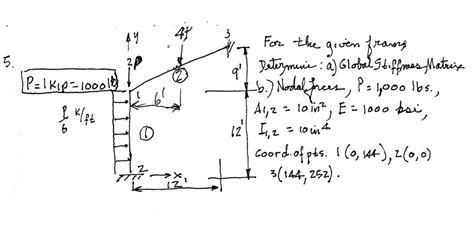 5.
P=1 Kip=1000 lb
P/6 K/ft
y
2P
4P
3
②
1
6'
9'
①
12'
2
x
12'
For the given frame,
Determine: a) Global Stiffness Matrix
b.) Nodal forces, P=1,000 lbs.,
A1,2 = 10 in², E = 1000 ksi,
I1,2 = 10 in4
Coord. of pts. 1(0,144), 2(0,0)
3(144,252).